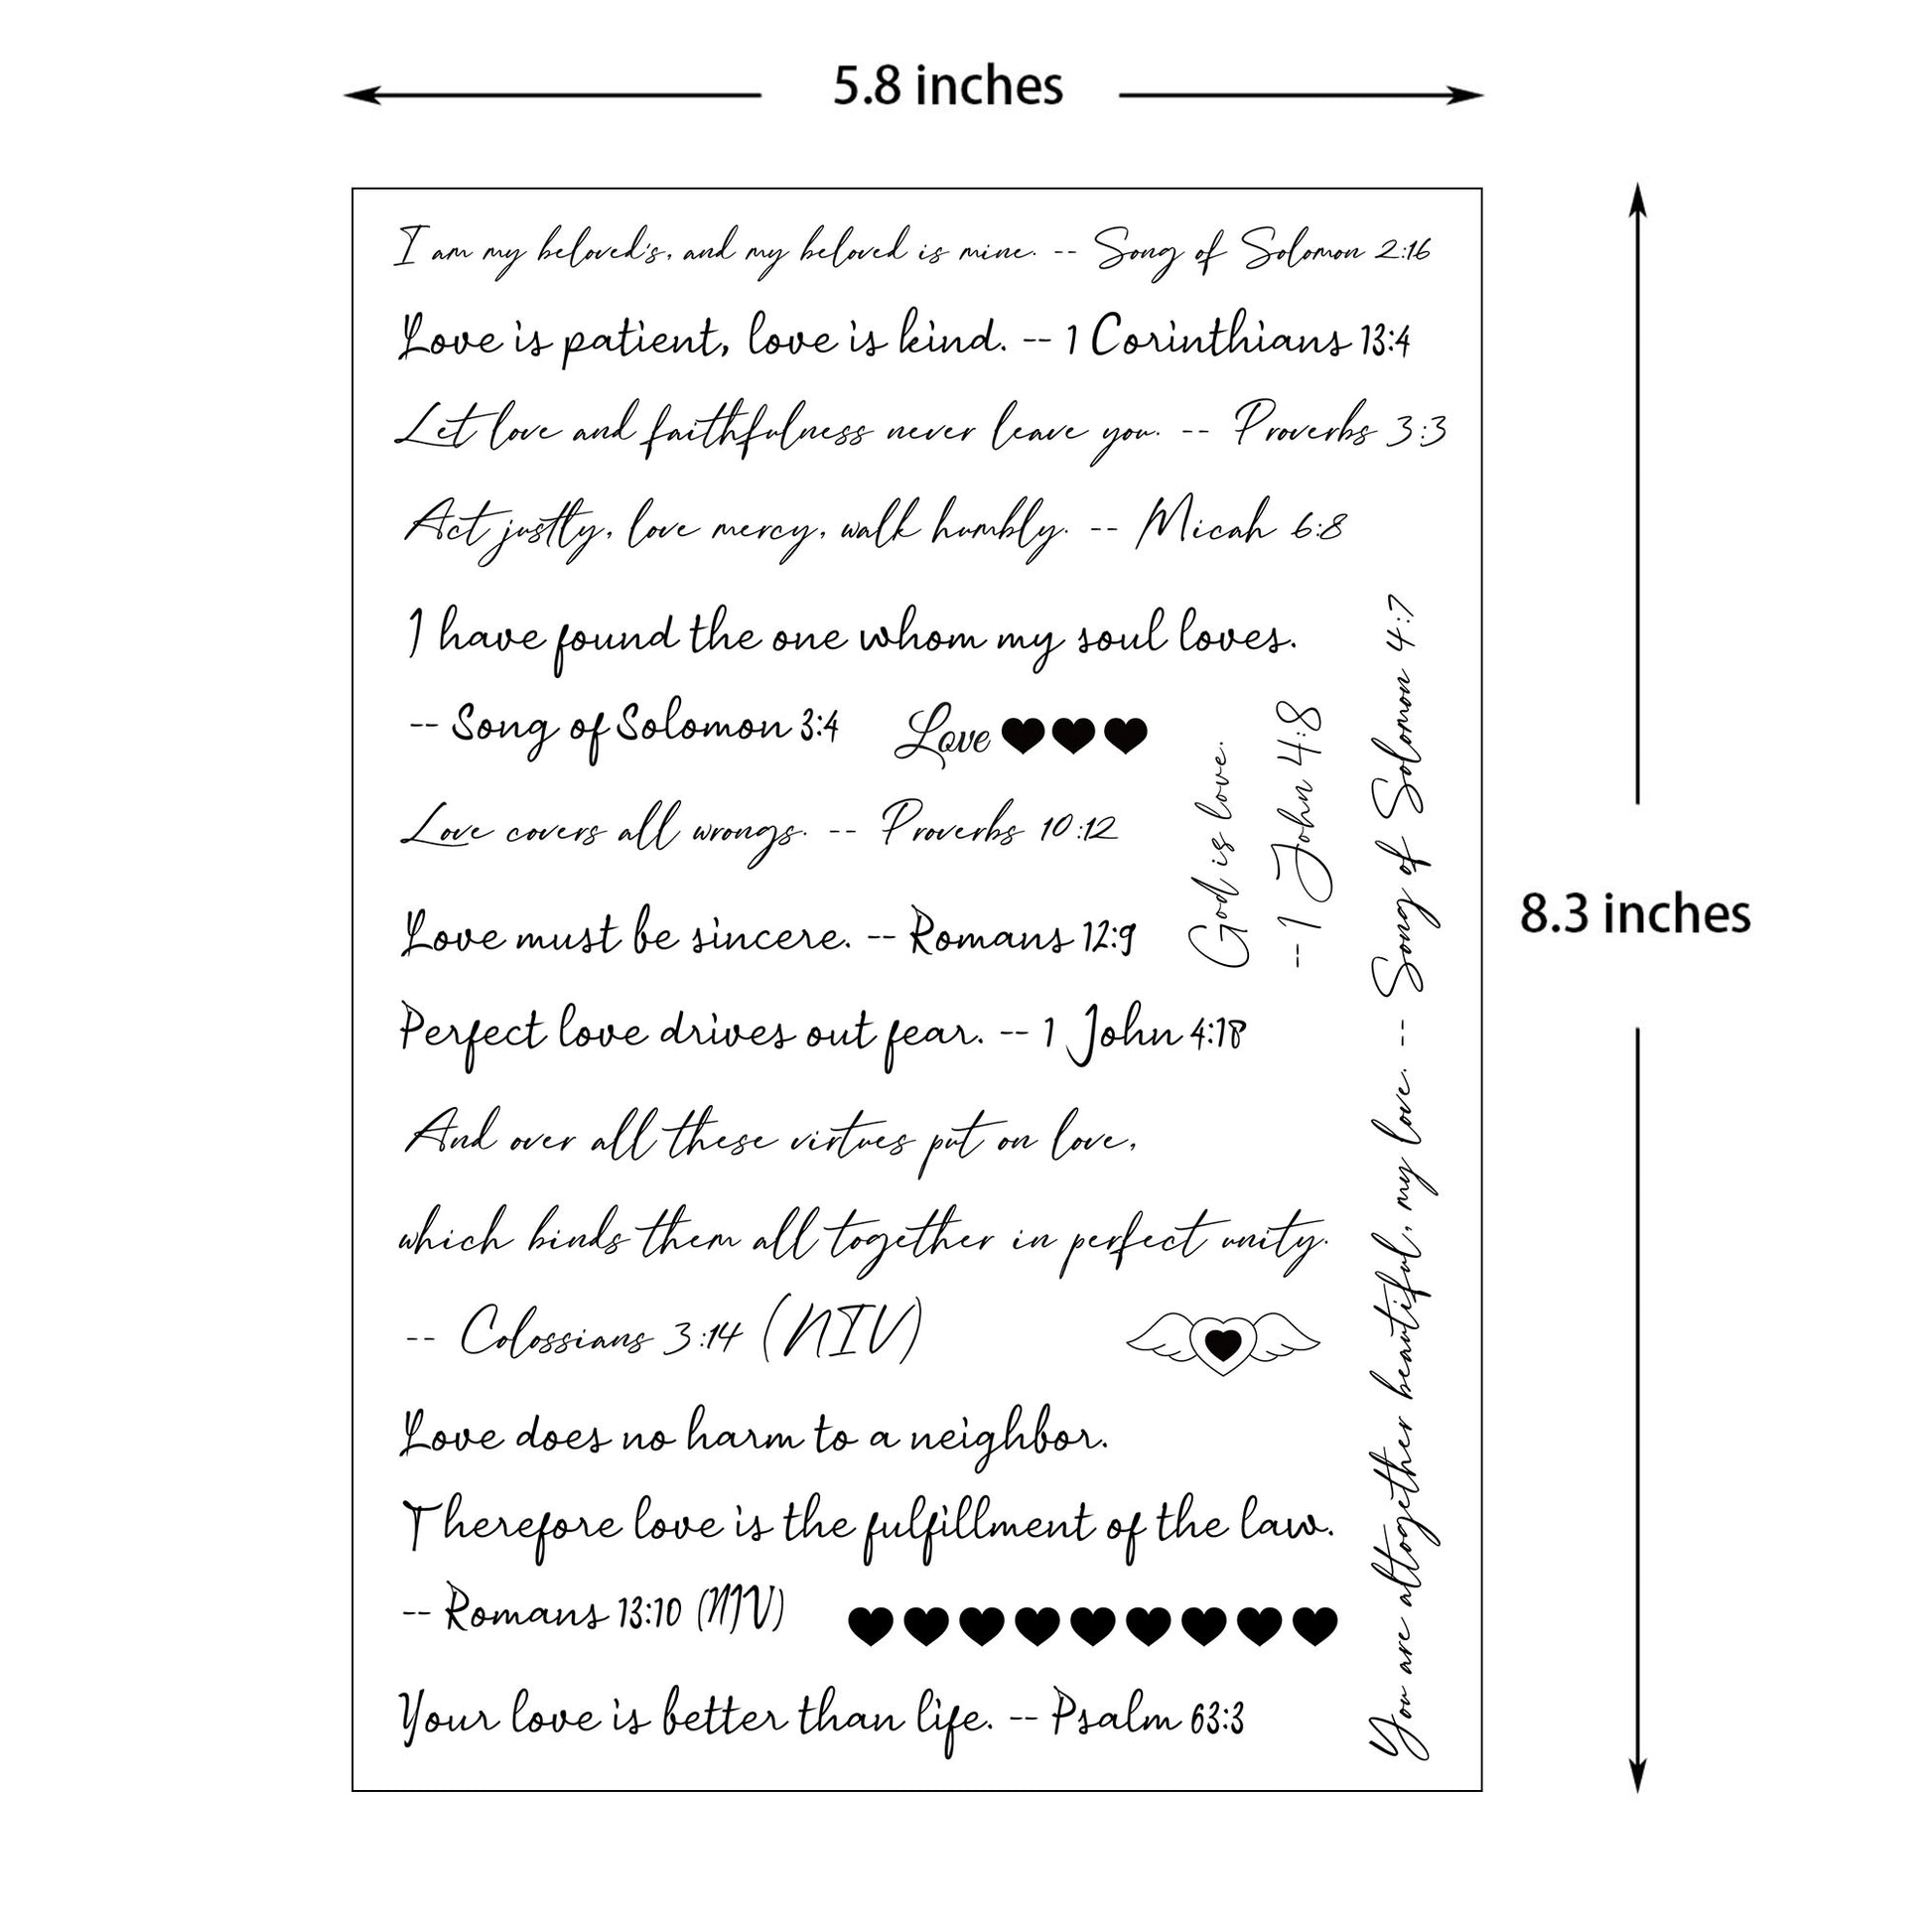 5.8 inches
I am my beloved's, and my beloved is mine. -- Song of Solomon 2:16
Love is patient, love is kind. -- 1 Corinthians 13:4
Let love and faithfulness never leave you. -- Proverbs 3:3
Act justly, love mercy, walk humbly. -- Micah 6:8
I have found the one whom my soul loves.
-- Song of Solomon 3:4
Love
Love covers all wrongs. -- Proverbs 10:12
Love must be sincere. -- Romans 12:9
Perfect love drives out fear. -- 1 John 4:18
And over all these virtues put on love,
which binds them all together in perfect unity.
-- Colossians 3:14 (NIV)
Love does no harm to a neighbor.
Therefore love is the fulfillment of the law.
-- Romans 13:10 (NIV)
Your love is better than life. -- Psalm 63:3
God is love.
-- 1 John 4:8
You are altogether beautiful, my love. -- Song of Solomon 4:7
8.3 inches